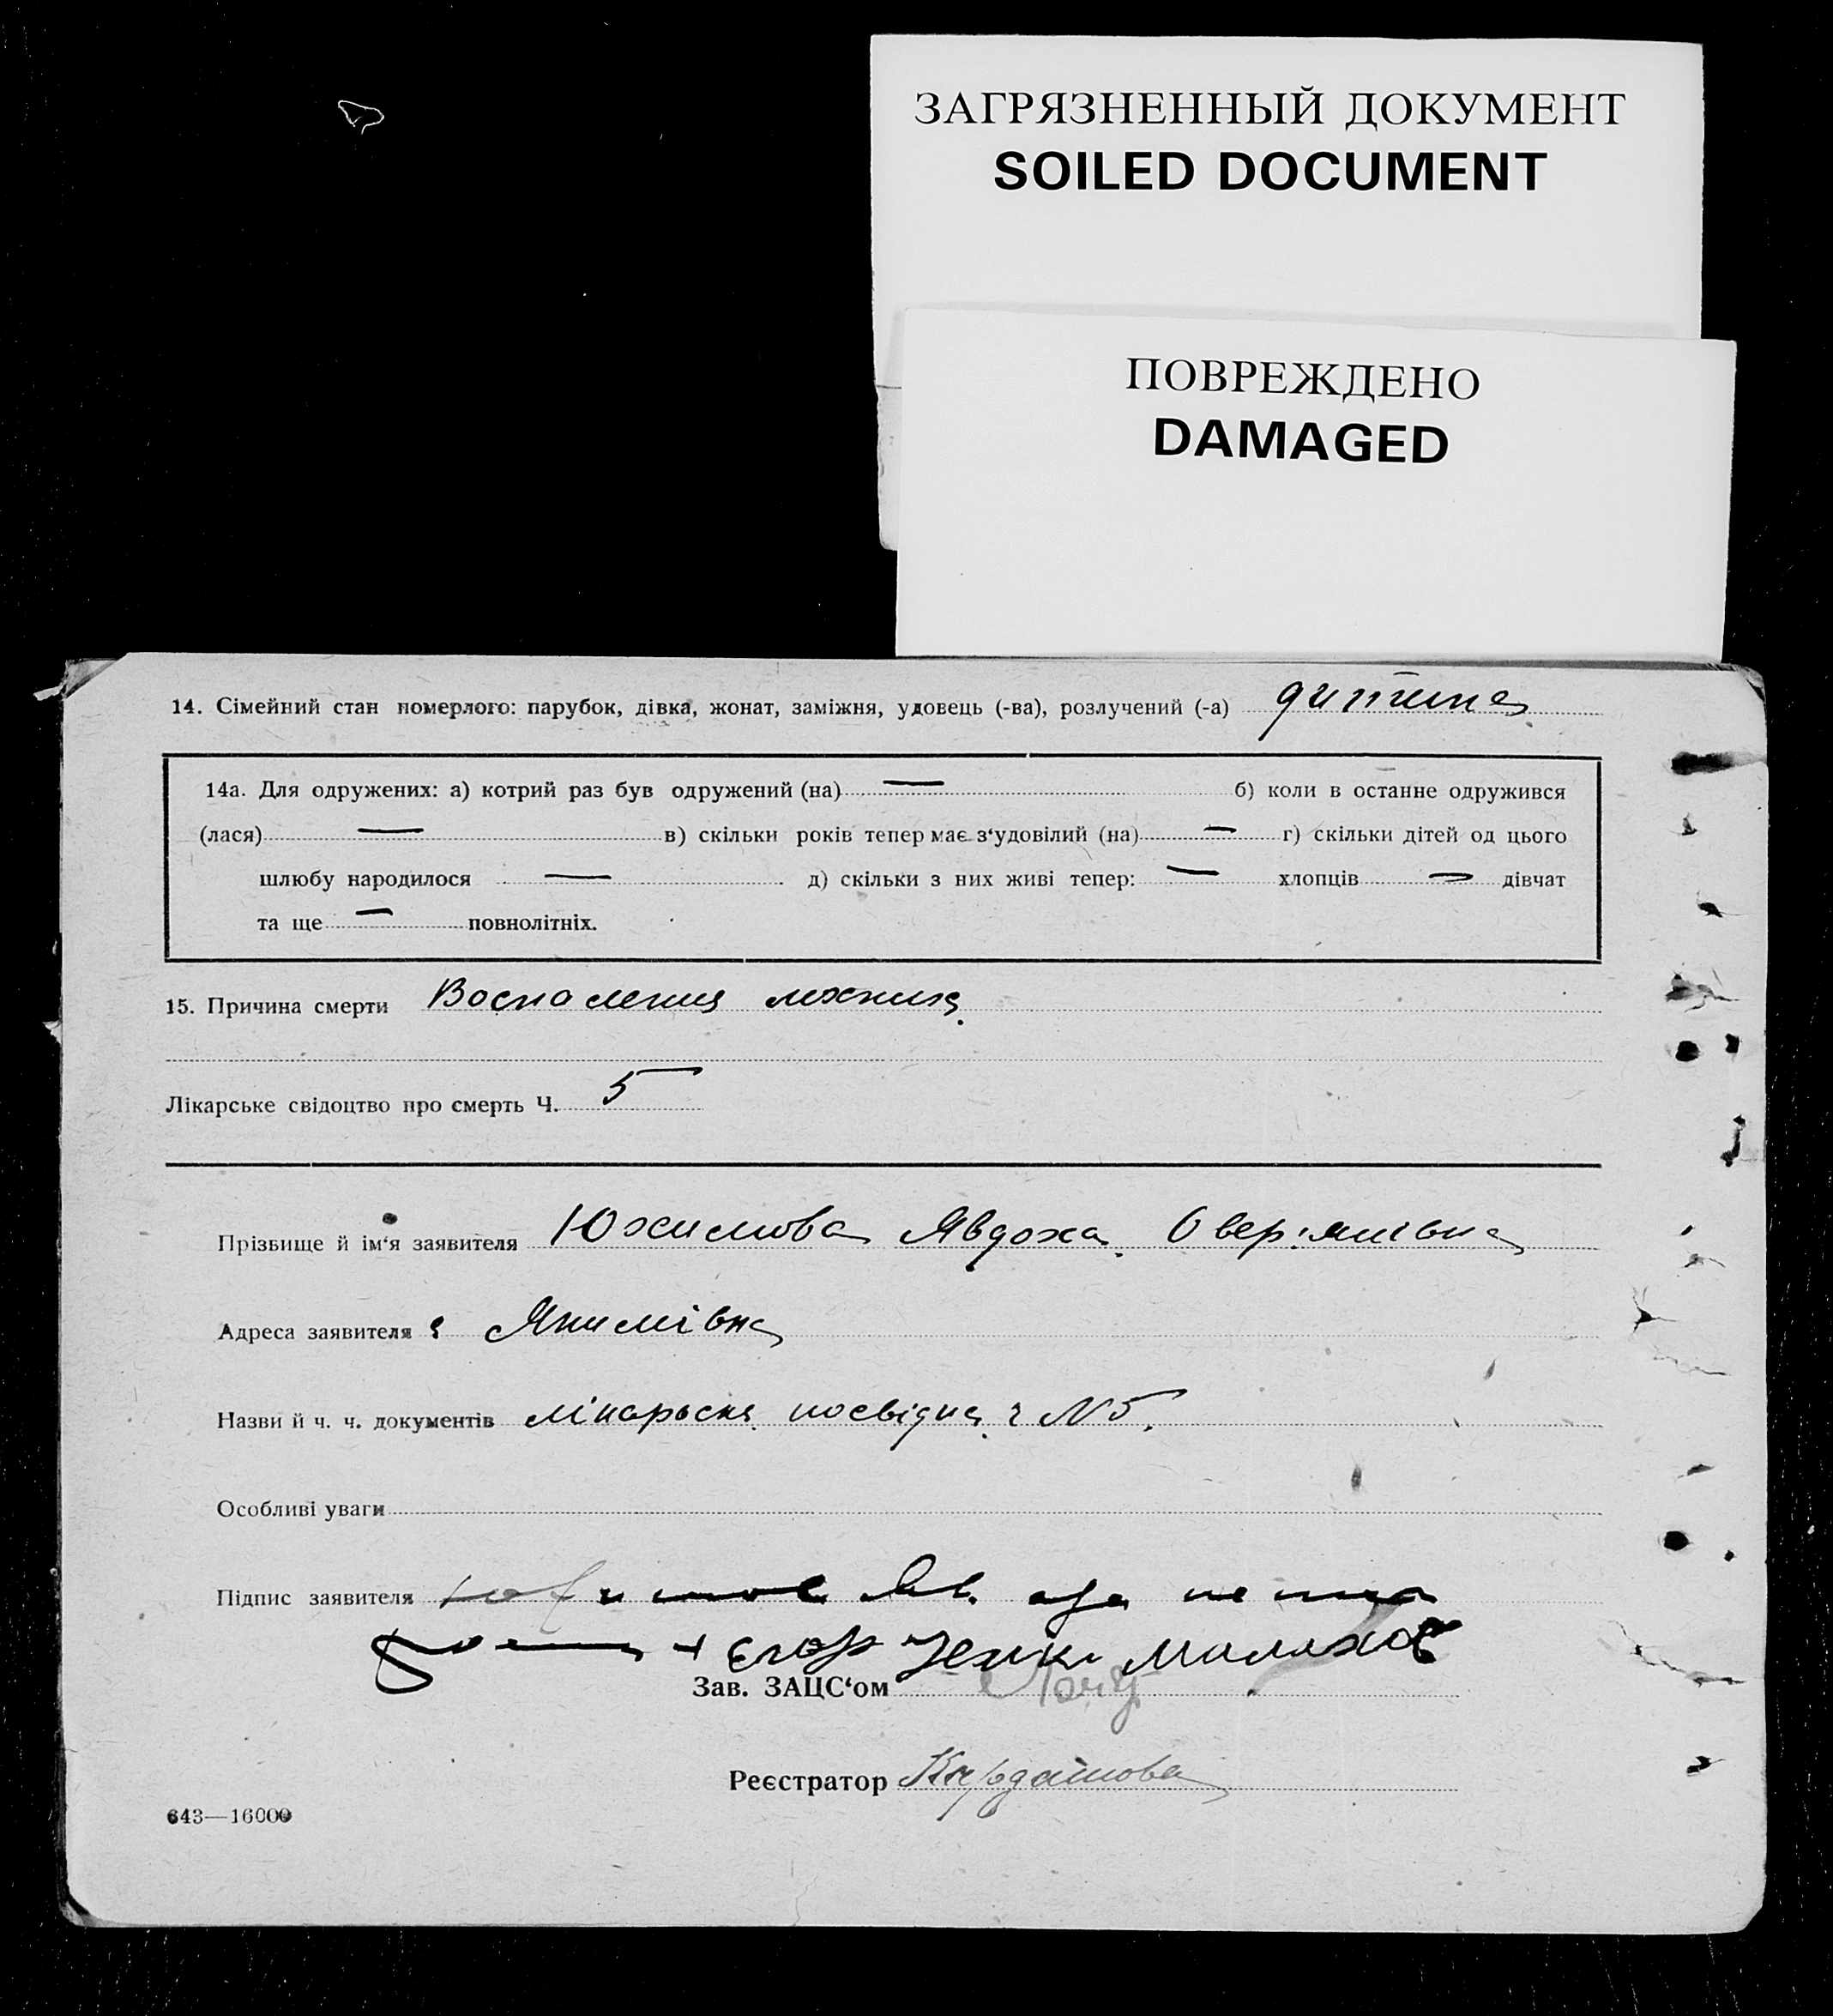 ЗАГРЯЗНЕННЫЙ ДОКУМЕНТ
SOILED DOCUMENT
ПОВРЕЖДЕНО
DAMAGED
14. Сімейний стан померлого: парубок, дівка, жонат, заміжня, удовець (-ва), розлучений (-а) дитина
14а. Для одружених: а) котрий раз був одружений (на) — б) коли в останне одружився
(лася) — в) скільки років тепер має з‘удовілий (на) — г) скільки дітей од цього
шлюбу народилося — д) скільки з них живі тепер: — хлопців — дівчат
та ще — повнолітніх.
15. Причина смерти Воспаления
Лікарське свідоцтво про смерть Ч. 5
Прізвище й ім‘я заявителя Юхимова Явдоха Овер'янівна
Адреса заявителя Якимівка
Назви й ч. ч. документів лікарська посвідка № 5.
Особливі уваги
Підпис заявителя
Зав. ЗАЦС‘ом
Реєстратор Кардашова
643—16000